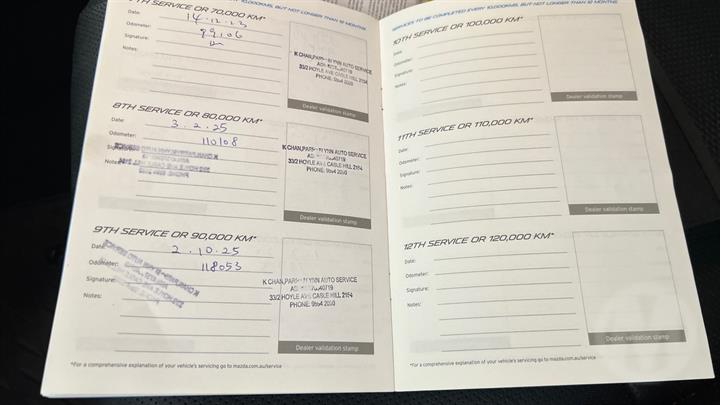 7TH SERVICE OR 70,000 KM*
Date: 14.12.23
Odometer: 99106
Signature:
Notes:
AUTO SERVICE
33/2 HOYLE AVE CASTLE HILL 2154
Dealer validation stamp
8TH SERVICE OR 80,000 KM*
Date: 3.2.25
Odometer: 110108
Signature:
Notes:
LYNN AUTO SERVICE
33/2 HOYLE AVE CASTLE HILL 2154
Dealer validation stamp
9TH SERVICE OR 90,000 KM*
Date: 2.10.25
Odometer: 118053
Signature:
Notes:
LYNN AUTO SERVICE
33/2 HOYLE AVE CASTLE HILL 2154
Dealer validation stamp
*For a comprehensive explanation of your vehicle's servicing go to mazda.com.au/service
SERVICES TO BE COMPLETED EVERY 10,000KMS, BUT NOT LONGER THAN 12 MONTHS
10TH SERVICE OR 100,000 KM*
Date:
Odometer:
Signature:
Notes:
Dealer validation stamp
11TH SERVICE OR 110,000 KM*
Date:
Odometer:
Signature:
Notes:
Dealer validation stamp
12TH SERVICE OR 120,000 KM*
Date:
Odometer:
Signature:
Notes:
Dealer validation stamp
*For a comprehensive explanation of your vehicle's servicing go to mazda.com.au/service